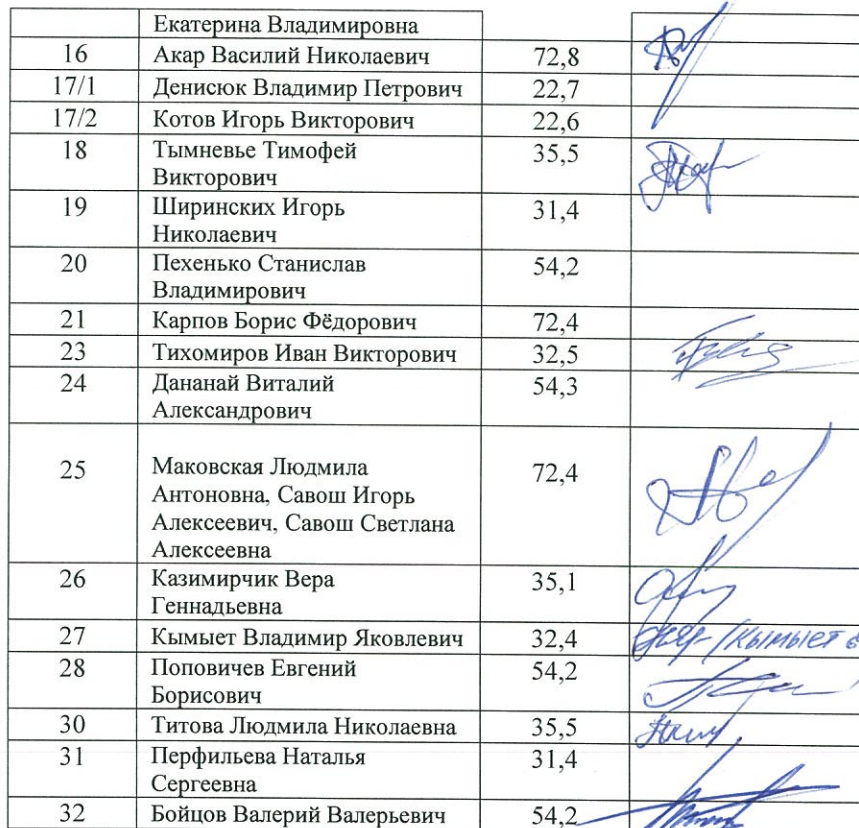 Екатерина Владимировна
16 Акар Василий Николаевич 72,8
17/1 Денисюк Владимир Петрович 22,7
17/2 Котов Игорь Викторович 22,6
18 Тымневье Тимофей 35,5
Викторович
19 Ширинских Игорь 31,4
Николаевич
20 Пехенько Станислав 54,2
Владимирович
21 Карпов Борис Фёдорович 72,4
23 Тихомиров Иван Викторович 32,5
24 Дананай Виталий 54,3
Александрович
25 Маковская Людмила 72,4
Антоновна, Савош Игорь
Алексеевич, Савош Светлана
Алексеевна
26 Казимирчик Вера 35,1
Геннадьевна
27 Кымыет Владимир Яковлевич 32,4 /Кымыет
28 Поповичев Евгений 54,2
Борисович
30 Титова Людмила Николаевна 35,5
31 Перфильева Наталья 31,4
Сергеевна
32 Бойцов Валерий Валерьевич 54,2